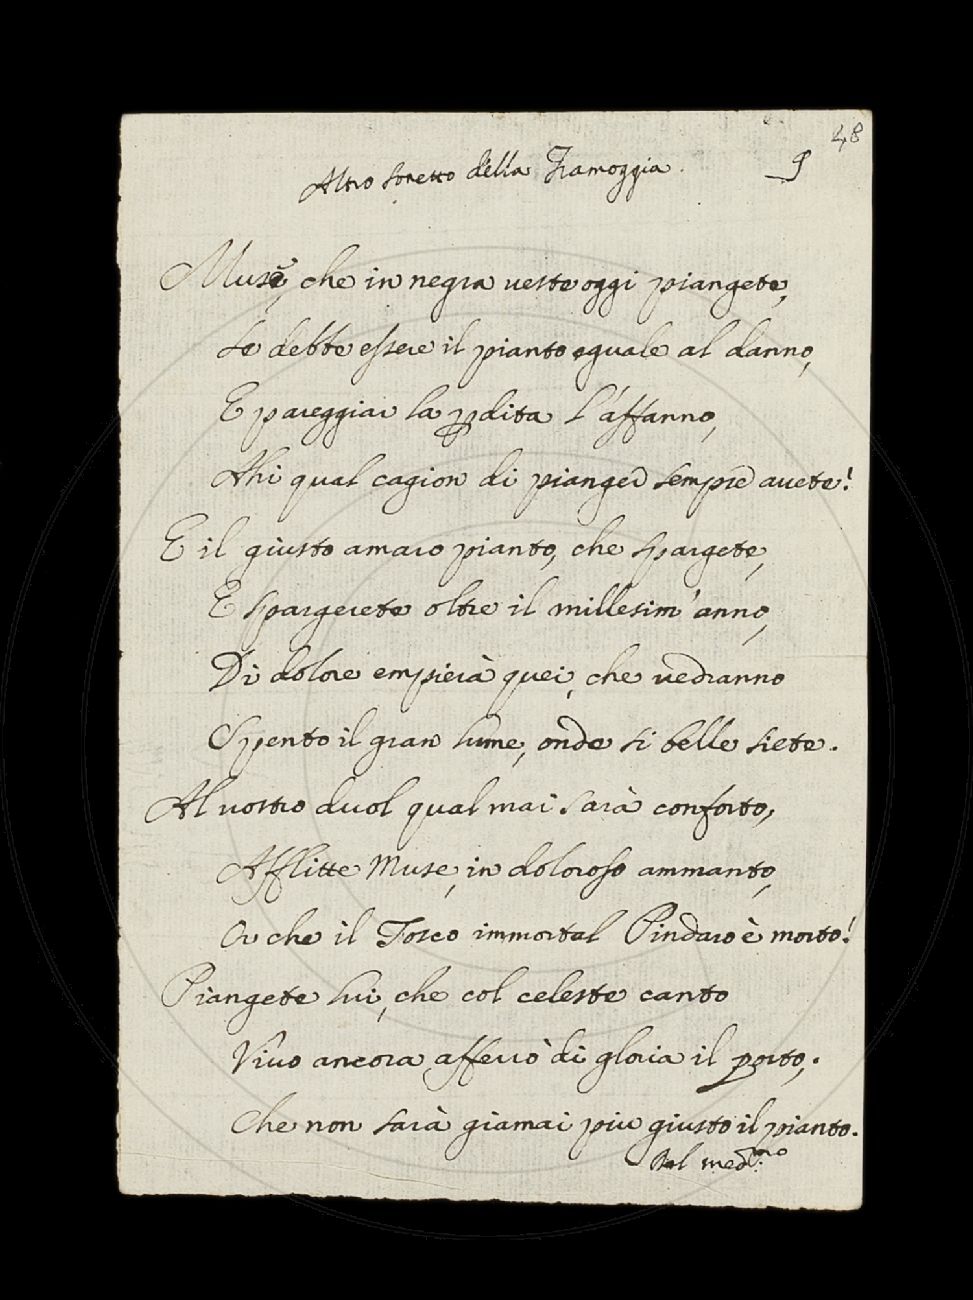 48
9
Altro sonetto della Framoggia.
Muse, che in negra veste oggi piangete,
Se debbe essere il pianto eguale al danno,
E pareggiar la pdita l'affanno,
Ahi qual cagion di pianger sempre avete!
E il giusto amaro pianto, che spargete,
E spargerete oltre il millesim'anno,
Di dolore empierà quei, che vedranno
Spento il gran lume, onde si belle siete.
Al vostro duol qual mai sarà conforto,
Afflitte Muse, in doloroso ammanto,
Or che il Tosco immortal Pindaro è morto!
Piangete lui, che col celeste canto
Vivo ancora afferrò di gloria il porto,.
Che non sarà giamai piu giusto il pianto.
Del med.mo